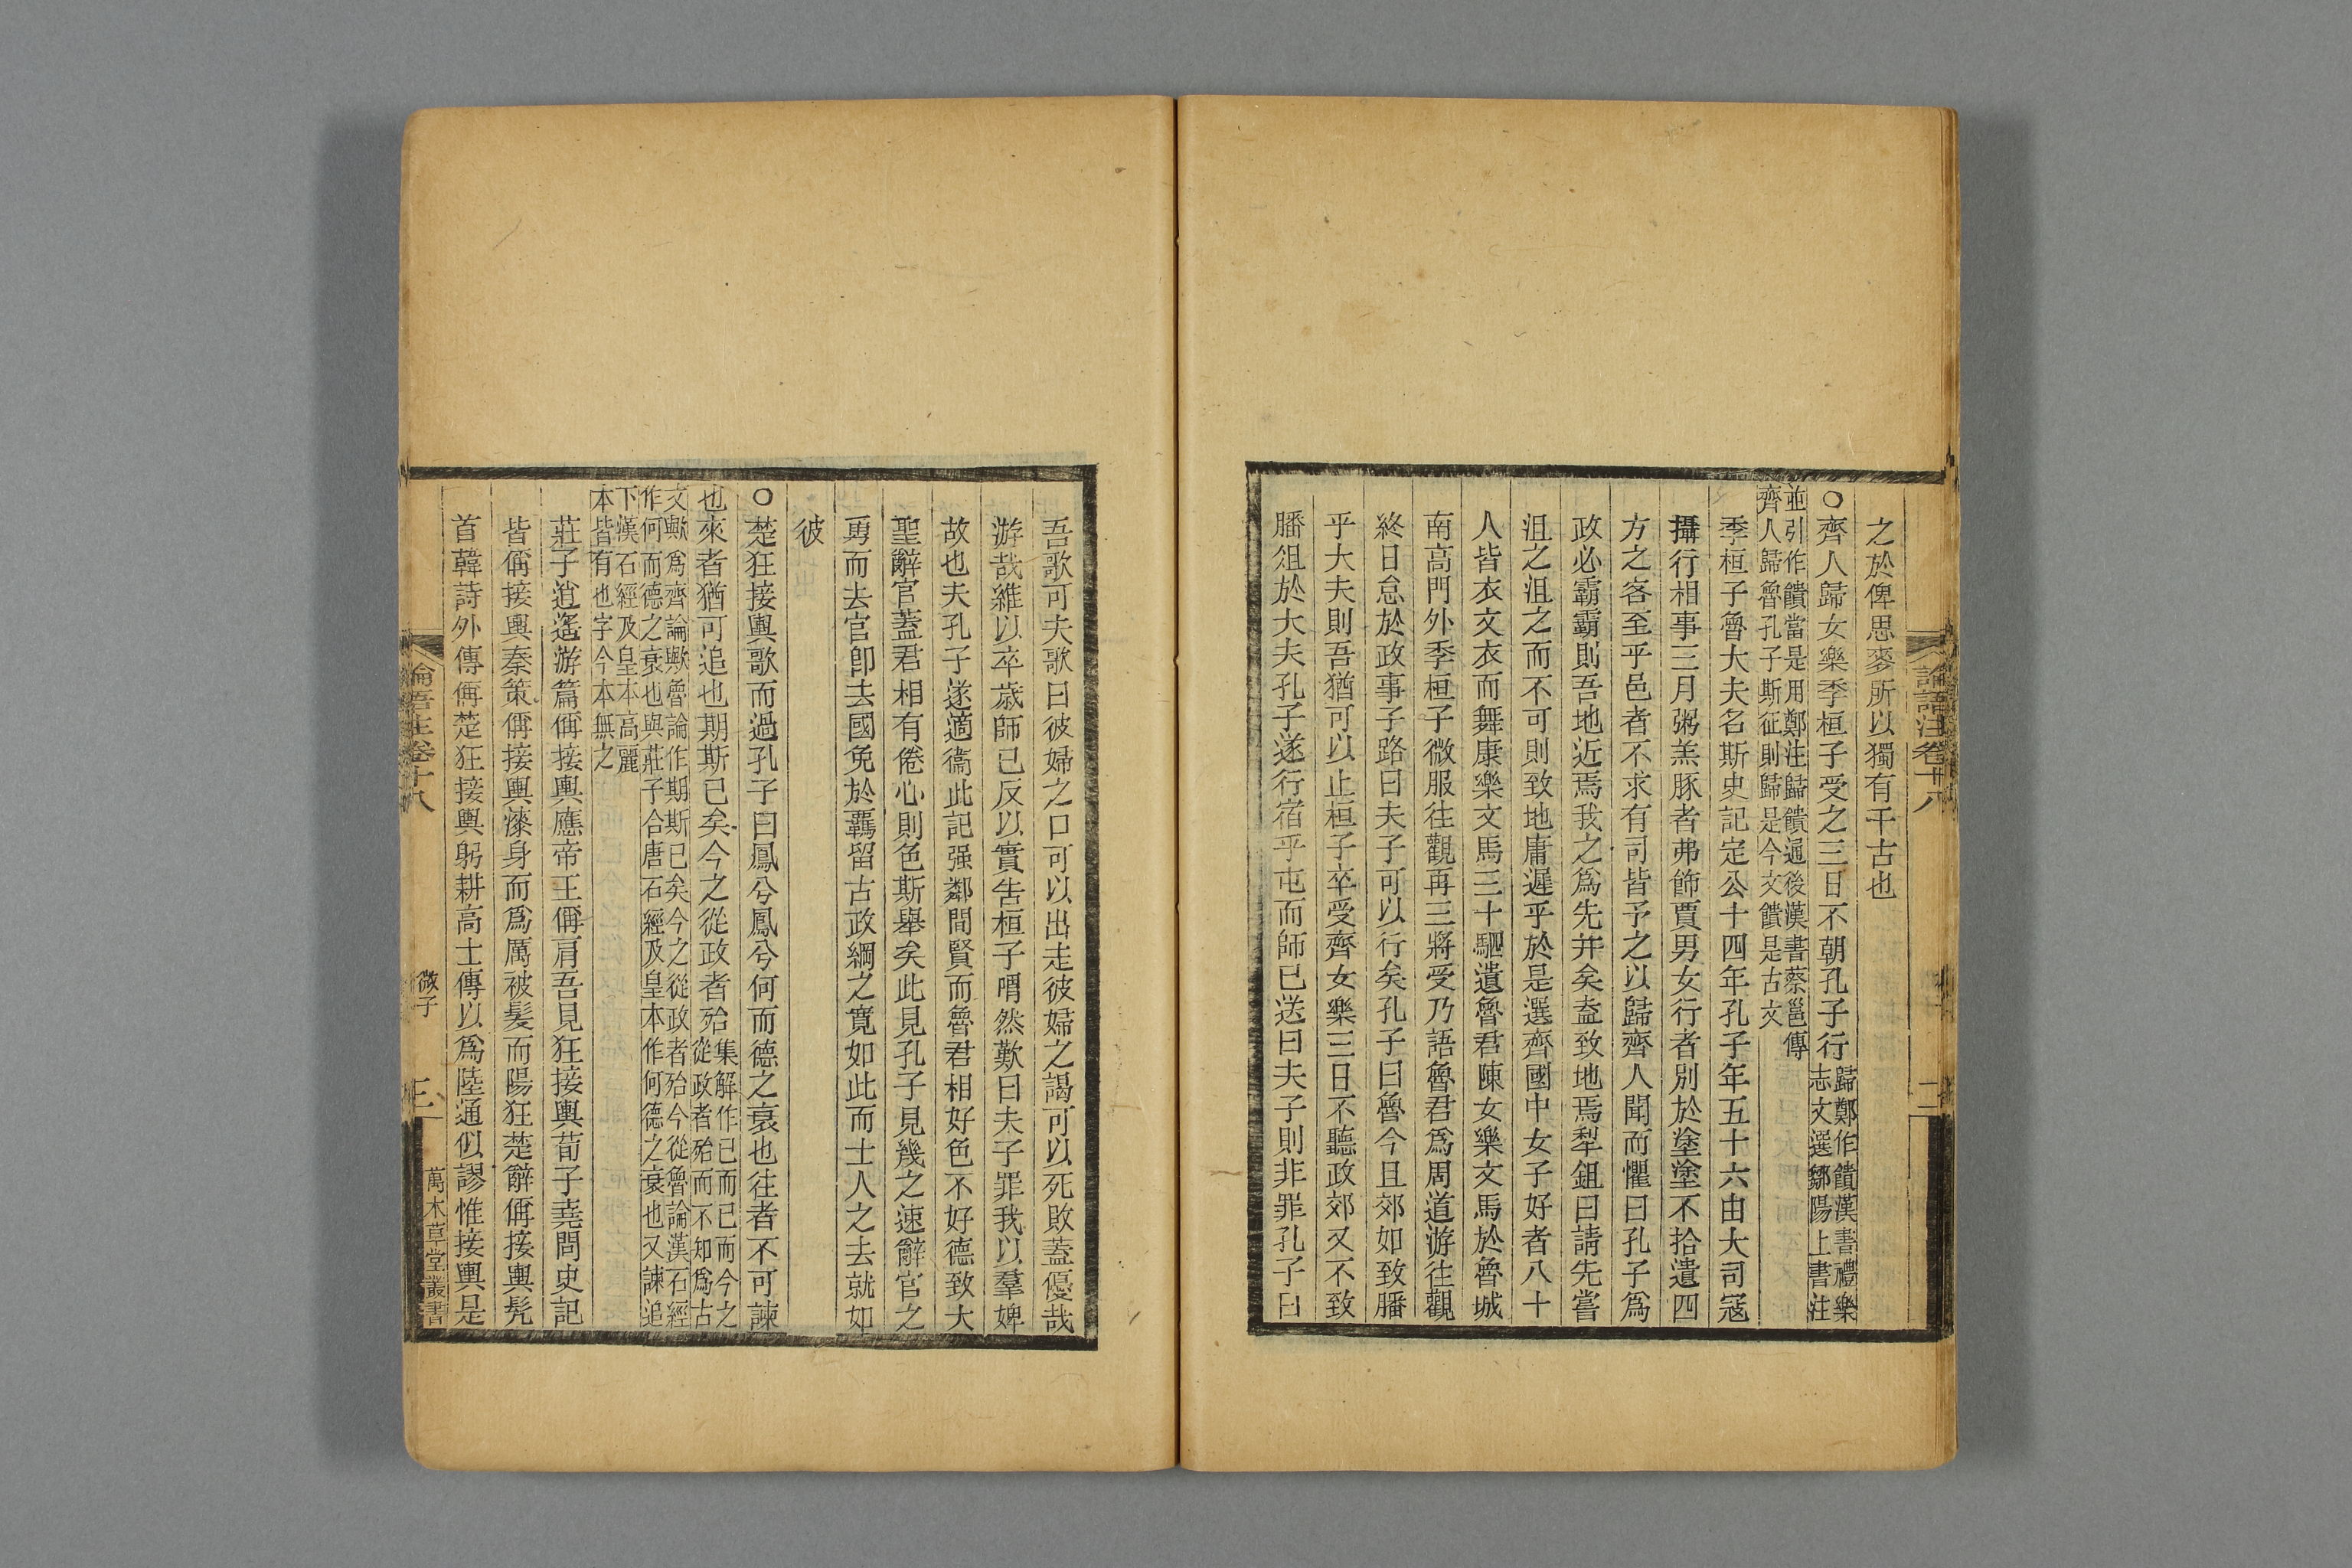 論語注卷十八
二
之於俾思麥所以獨有千古也
○齊人歸女樂季桓子受之三日不朝孔子行
歸鄭作饋漢書禮樂
志文選鄒陽上書注
並引作饋當是用鄭注歸饋通後漢書蔡邕傳
齊人歸魯孔子斯征則歸是今文饋是古文
季桓子魯大夫名斯史記定公十四年孔子年五十六由大司寇
攝行相事三月粥羔豚者弗飾賈男女行者別於塗塗不拾遺四
方之客至乎邑者不求有司皆予之以歸齊人聞而懼曰孔子爲
政必霸霸則吾地近焉我之爲先并矣盍致地焉犁鉏曰請先嘗
沮之沮之而不可則致地庸遲乎於是選齊國中女子好者八十
人皆衣文衣而舞康樂文馬三十駟遺魯君陳女樂文馬於魯城
南高門外季桓子微服往觀再三將受乃語魯君爲周道游往觀
終日怠於政事子路曰夫子可以行矣孔子曰魯今且郊如致膰
乎大夫則吾猶可以止桓子卒受齊女樂三日不聽政郊又不致
膰俎於大夫孔子遂行宿乎屯而師已送曰夫子則非罪孔子曰
吾歌可夫歌曰彼婦之口可以出走彼婦之謁可以死敗蓋優哉
游哉維以卒歲師已反以實告桓子喟然歎曰夫子罪我以羣婢
故也夫孔子遂適衞此記强鄰間賢而魯君相好色不好德致大
聖辭官蓋君相有倦心則色斯舉矣此見孔子見幾之速辭官之
勇而去官卽去國免於羈留古政綱之寬如此而士人之去就如
彼
○楚狂接輿歌而過孔子曰鳳兮鳳兮何而德之衰也往者不可諫
也來者猶可追也期斯已矣今之從政者殆
集解作已而已而今之
從政者殆而不知爲古
文歟爲齊論歟魯論作期斯已矣今之從政者殆今從魯論漢石經
作何而德之衰也與莊子合唐石經及皇本作何德之衰也又諫追
下漢石經及皇本高麗
本皆有也字今本無之
莊子逍遙游篇偁接輿應帝王偁肩吾見狂接輿荀子堯問史記
皆偁接輿秦策偁接輿漆身而爲厲被髮而陽狂楚辭偁接輿髡
首韓詩外傳偁楚狂接輿躬耕高士傳以爲陸通似謬惟接輿是
論語注卷十八
微子
三
萬木草堂叢書